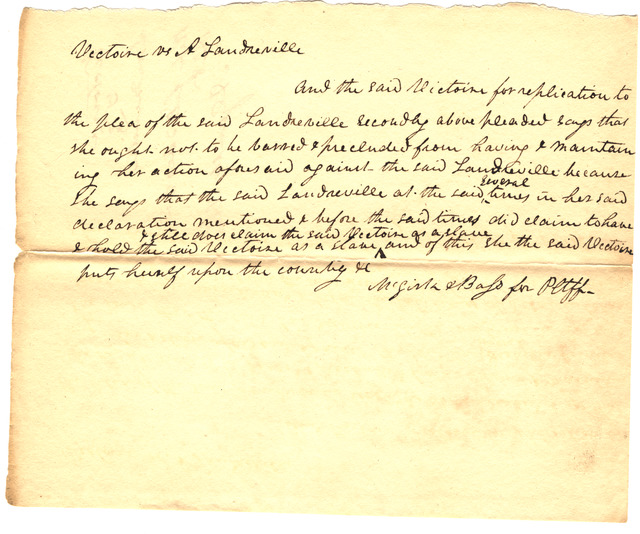 Victoire vs A Landreville
And the said Victoire for replication to
the plea of the said Landreville secondly above pleaded says that
she ought not to be barred & precluded from having & maintain
ing her action aforesaid against the said Landreville because
she says that the said Landreville at the said several times in her said
declaration mentioned & before the said times did claim to have
& still does claim the said Victoire as a slave
& hold the said Victoire as a slave ^ and of this she the said Victoire
puts herself upon the country &
McGirk & Bass for Pltff